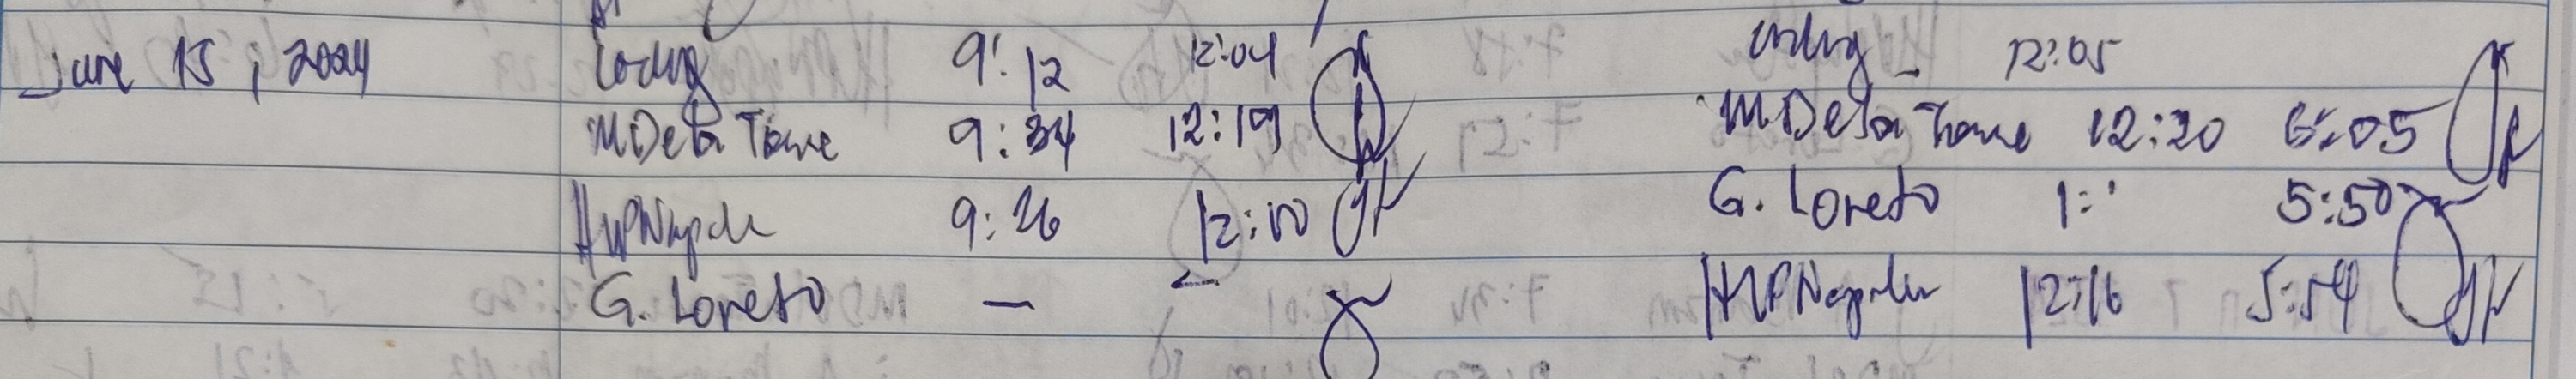 June 15, 2024 9:12 12:04 12:05
MDela Torre 9:34 12:19 MDela Torre 12:20 6:05
9:26 12:10 G. Loreto 1: 5:50
G. Loreto — – 12:16 5:54